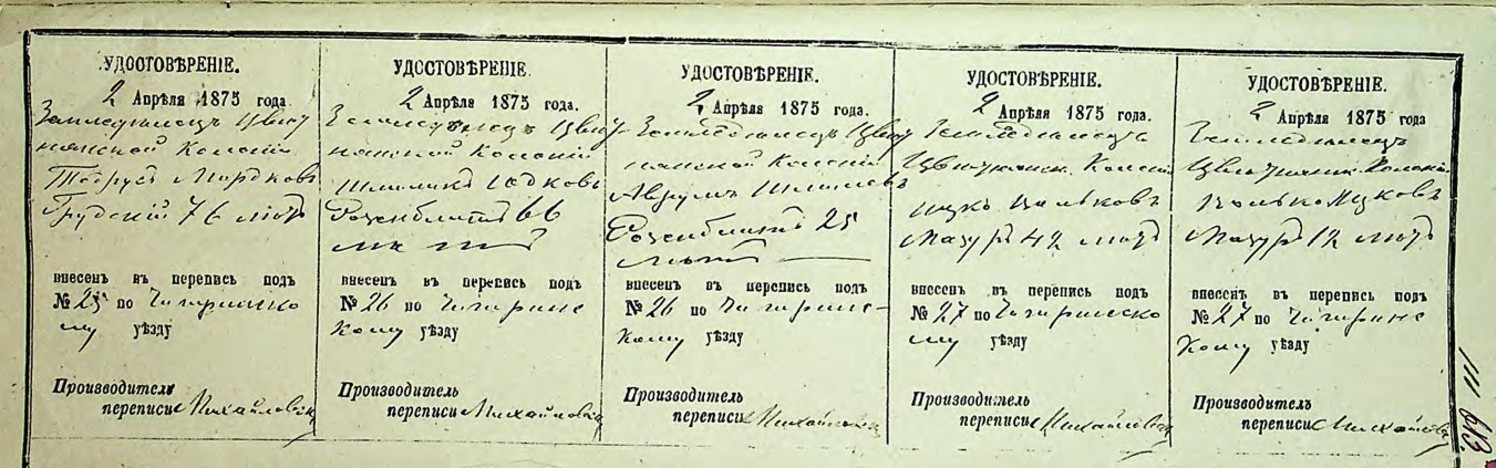 УДОСТОВѢРЕНІЕ.
2 Апрѣля 1875 года.
Земледѣлецъ Цвит
нянской Колоніи
Мордковъ
Грудскій 76 лѣтъ
внесенъ въ перепись подъ
№ 25 по Чигиринско
му уѣзду
Производитель
переписи Михайловскій
УДОСТОВѢРЕНІЕ.
2 Апрѣля 1875 года.
Земледѣлецъ
Колоніи
Шмиликъ Іодковъ
Розенблитъ 66
внесенъ въ перепись подъ
№ 26 по Чигиринс
кому уѣзду
Производитель
переписи Михайловскій
УДОСТОВѢРЕНІЕ.
2 Апрѣля 1875 года.
Земледѣлецъ
Колоніи
Аврумъ
Розенблитъ 25
лѣтъ
внесенъ въ перепись подъ
№ 26 по Чигиринс-
кому уѣзду
Производитель
переписи Михайловскій
УДОСТОВѢРЕНІЕ.
2 Апрѣля 1875 года.
Земледѣлецъ
Колоніи
Ицко Вольковъ
Мазуръ 42 лѣтъ
внесенъ въ перепись подъ
№ 27 по Чигиринско
му уѣзду
Производитель
переписи Михайловскій
УДОСТОВѢРЕНІЕ.
2 Апрѣля 1875 года
Земледѣлецъ
Колоніи
Волько Ицковъ
Мазуръ 12 лѣтъ
внесенъ въ перепись подъ
№ 27 по Чигиринс
кому уѣзду
Производитель
переписи Михайловскій